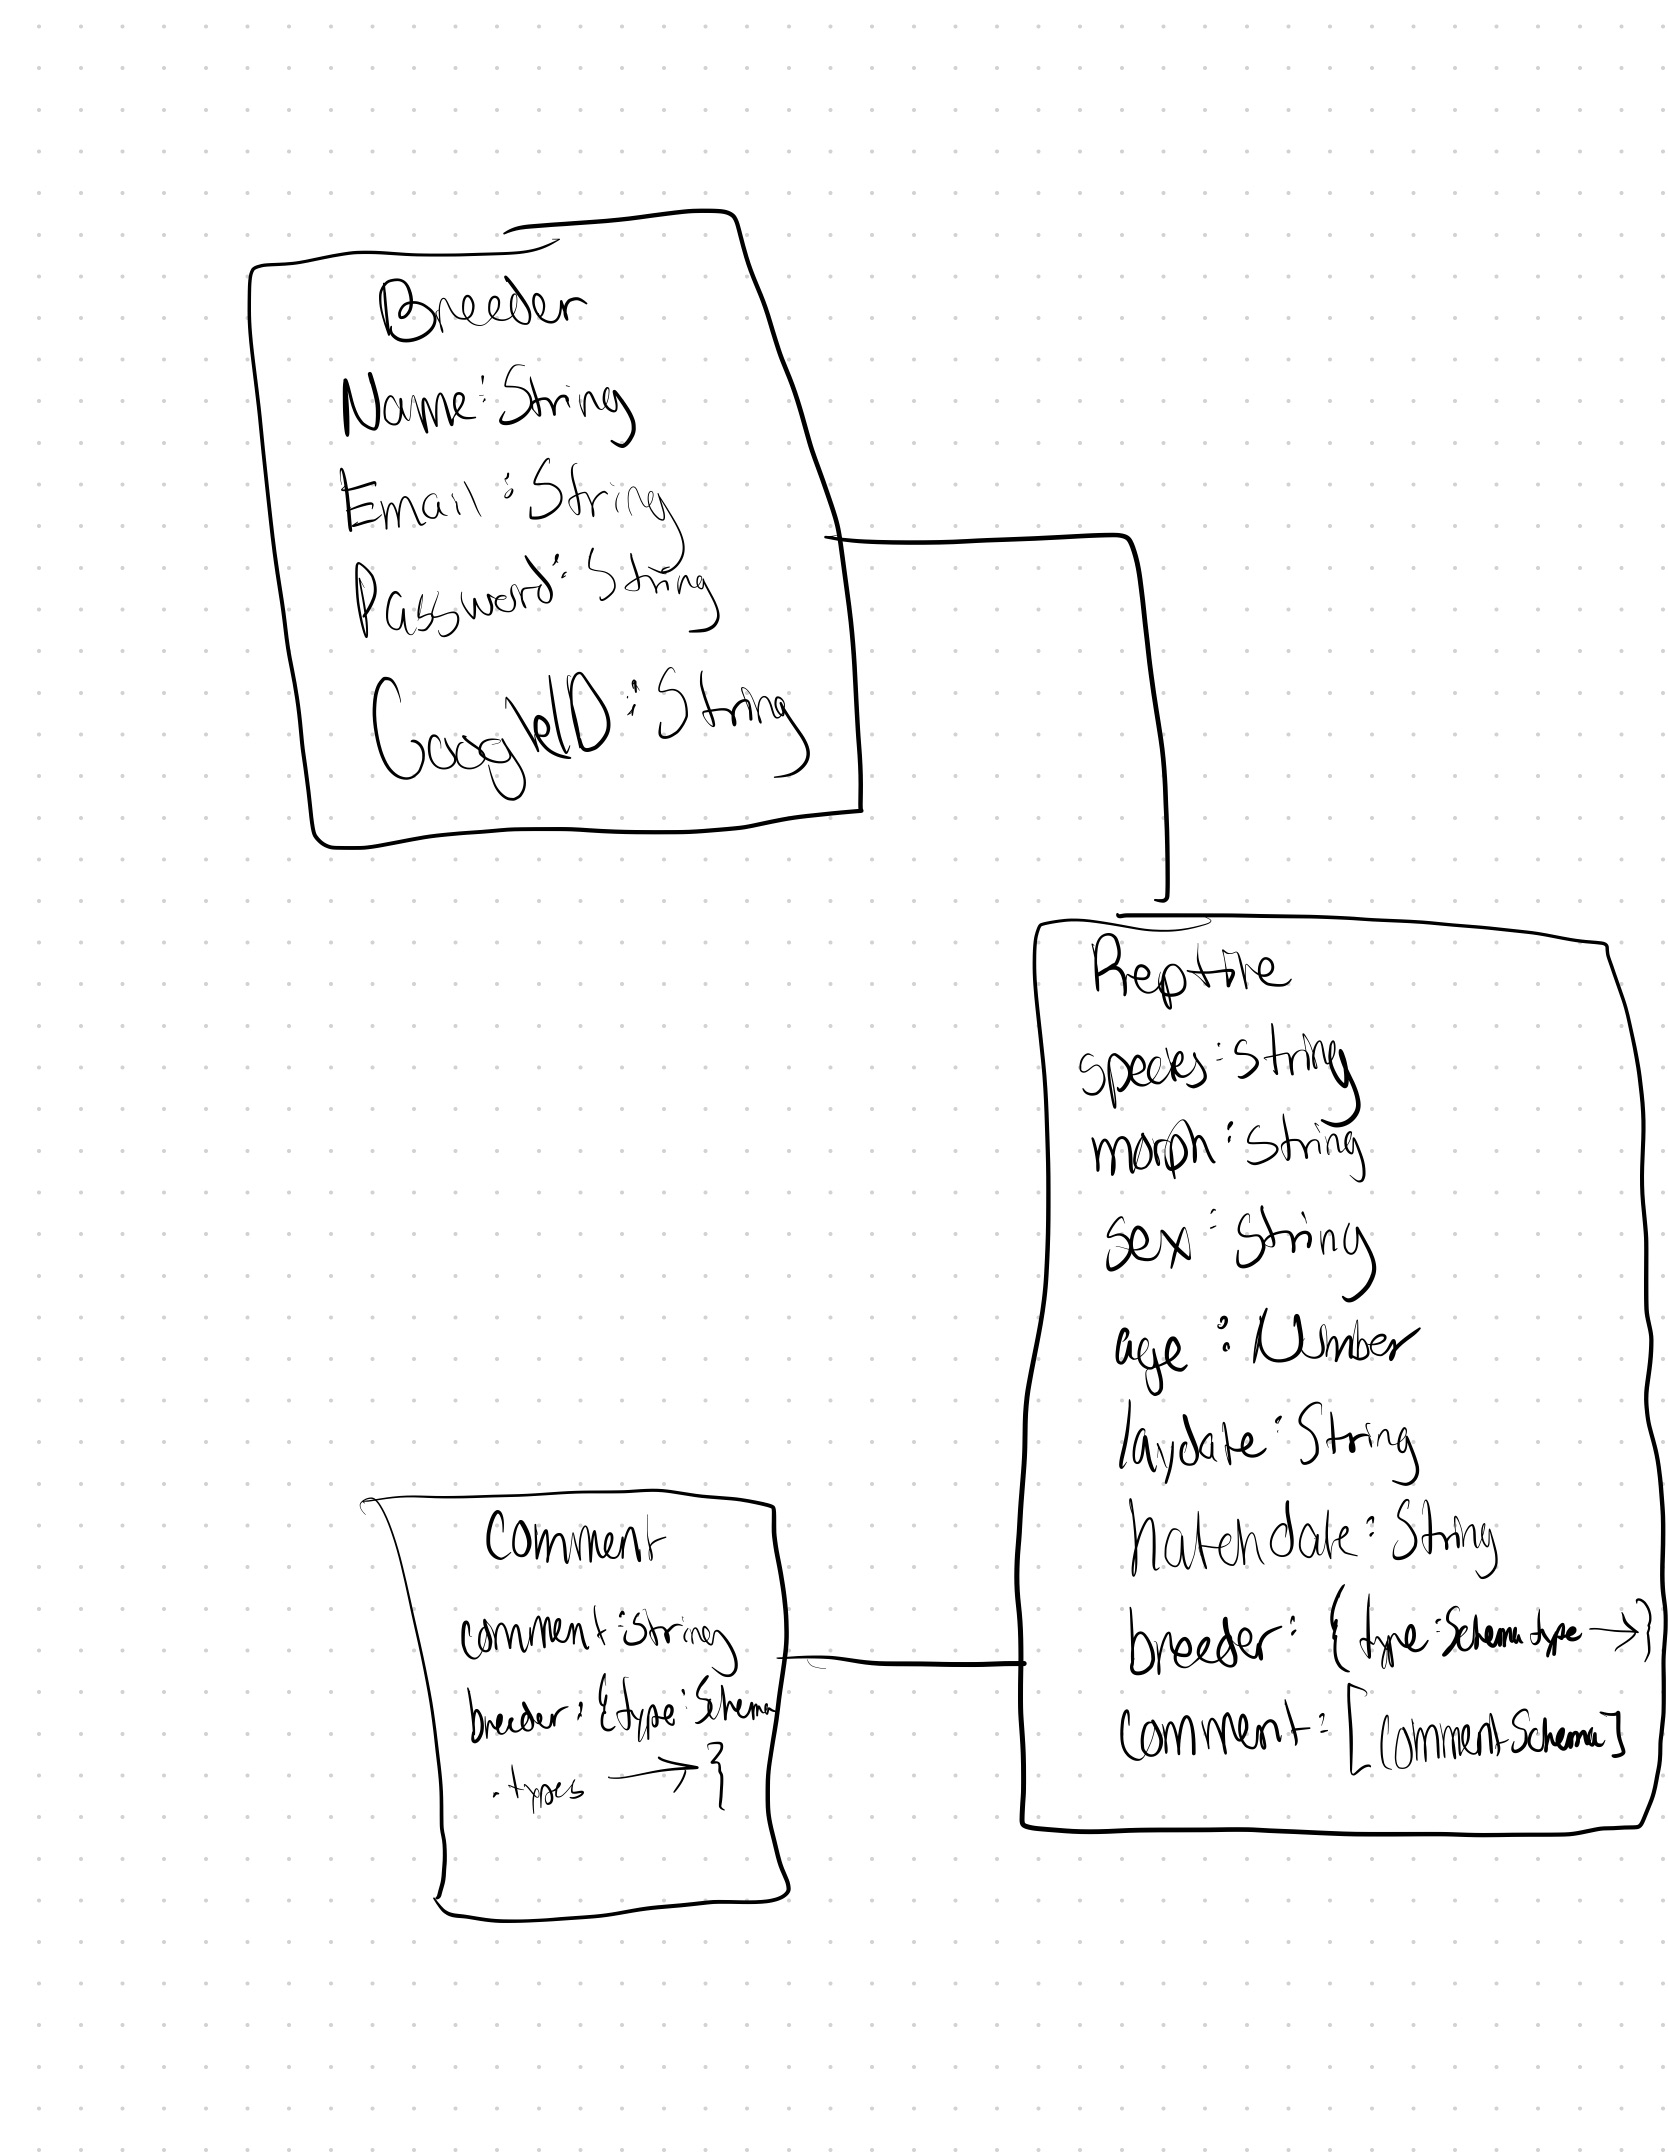 Breeder
Name: String
Email: String
Password: String
GoogleID: String
Reptile
species: string
morph: String
sex: String
age: Number
laydate: String
hatchdate: String
breeder: { type: Schema type → }
comment: [CommentSchema]
Comment
comment: String
breeder: { type: Schema
. types → }